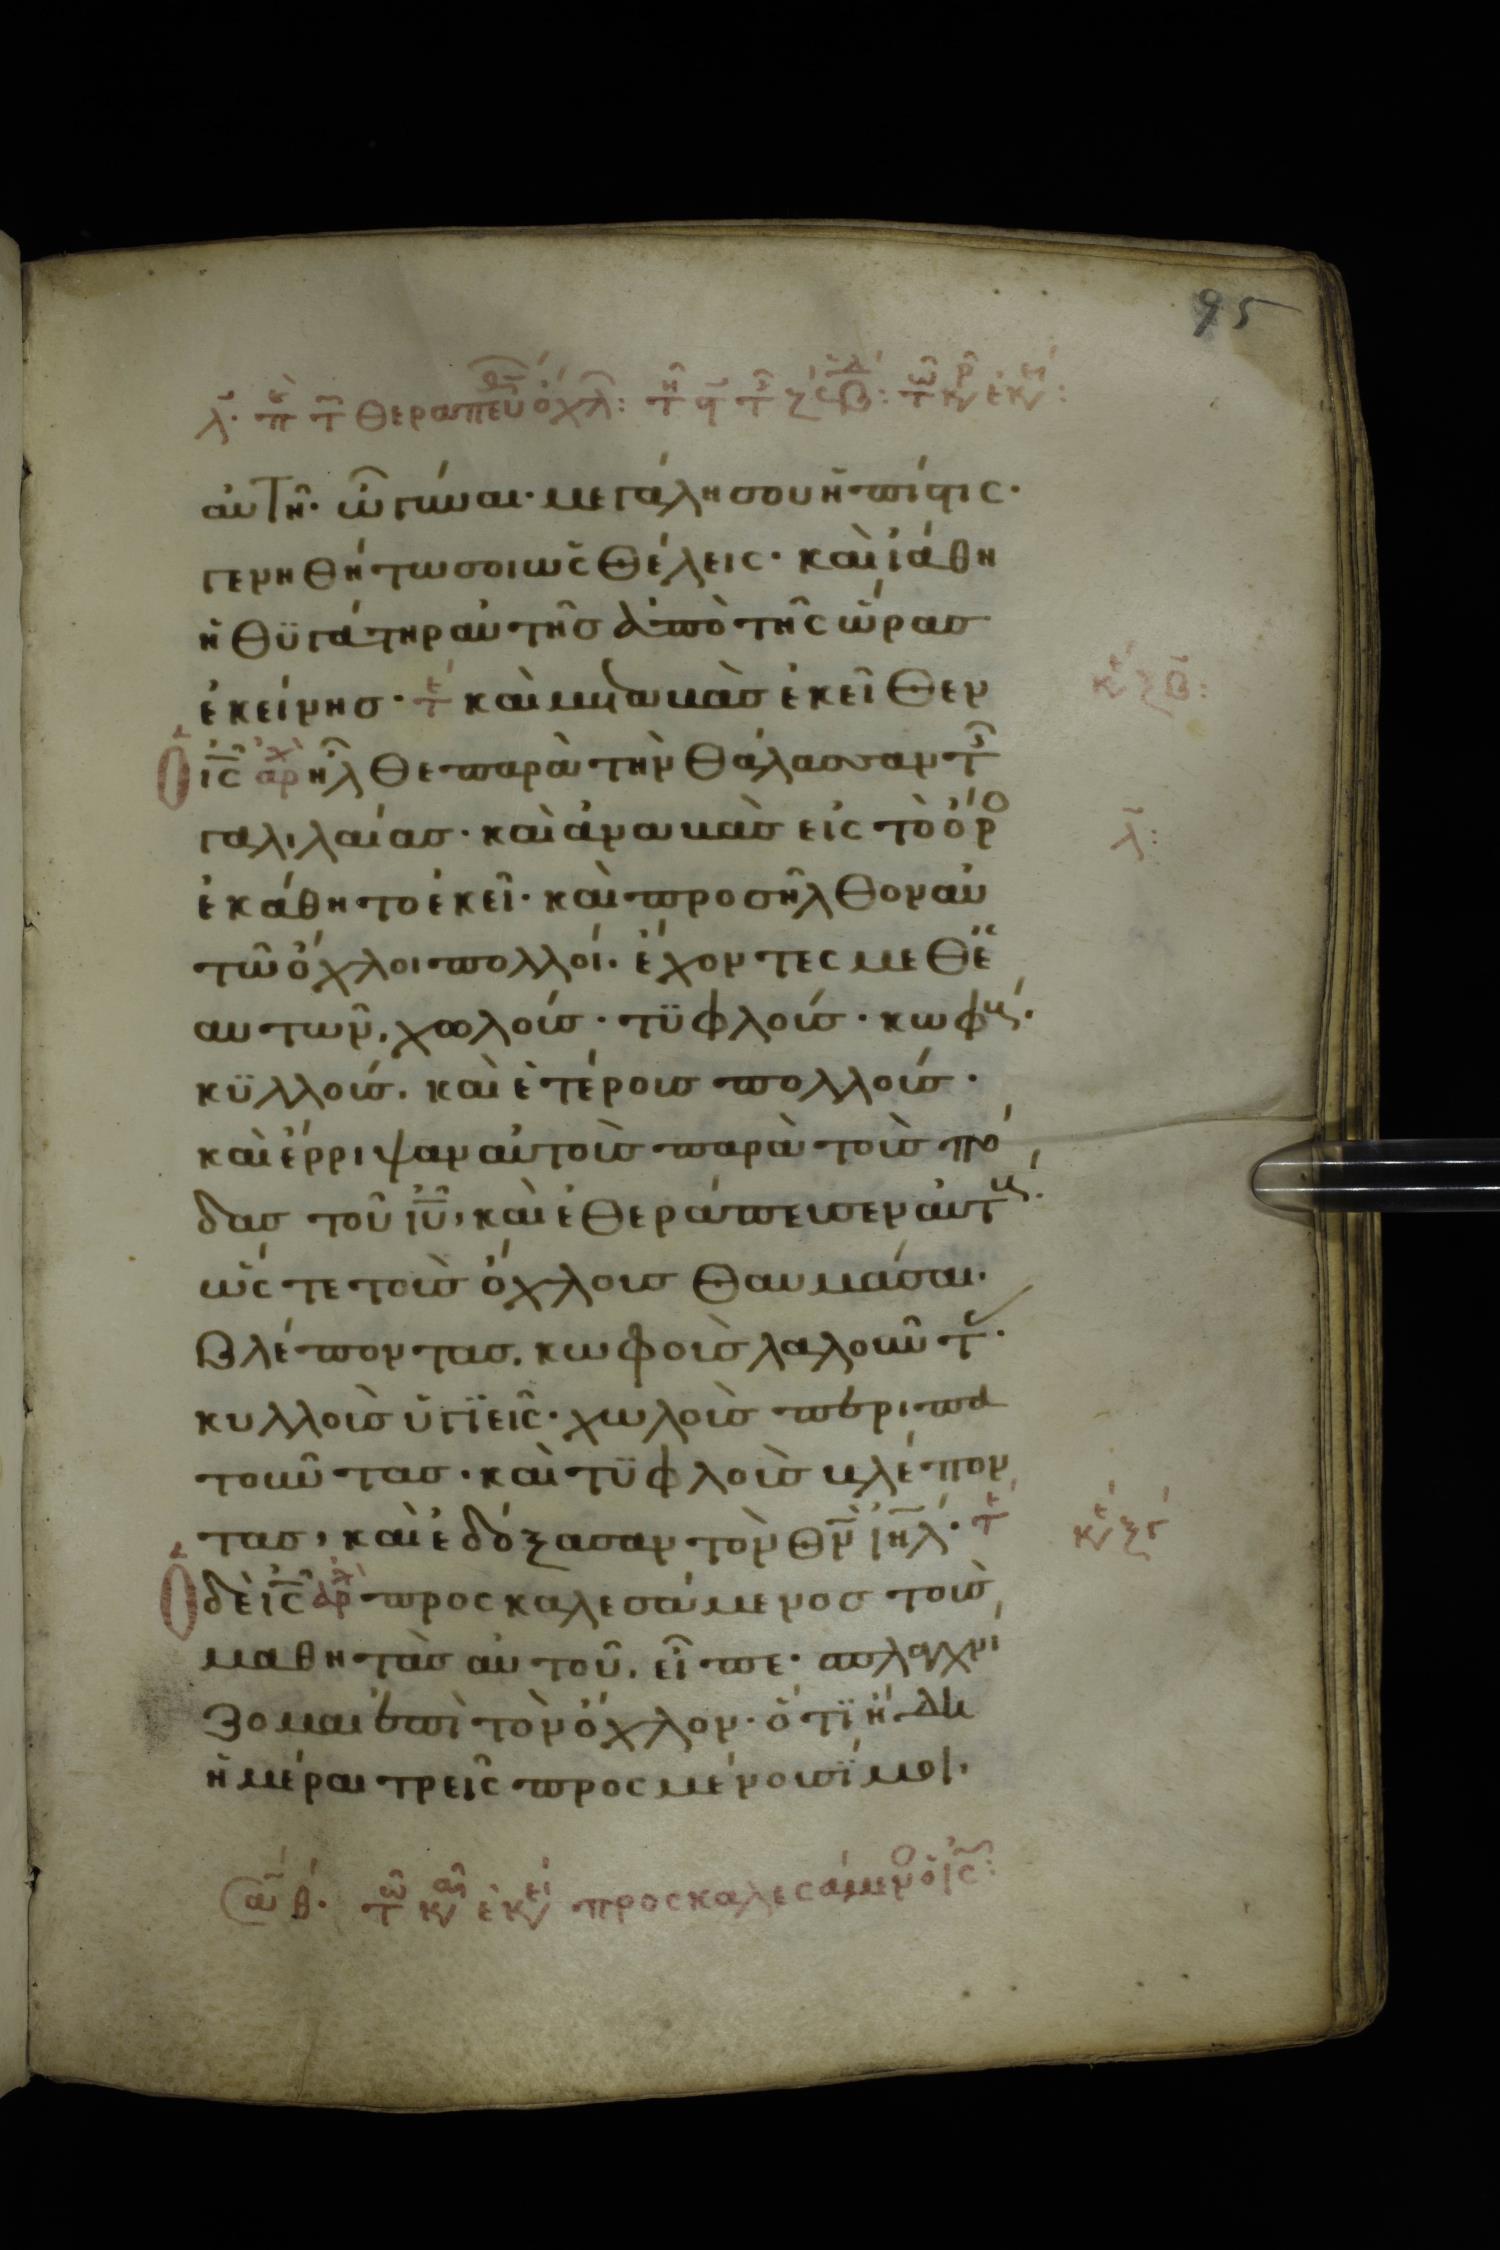 95
λ. π τ θεραπευ οχλ: τ τ ζ Β: τ κυ εκυ:
αὐτῆ· ὦ γύναι· μεγάλη σου ἡ πίστις·
γενηθήτω σοι ὡς θέλεις· καὶ ἰάθη
ἡ θϋγάτηρ αὐτῆς ἀπὸ τῆς ὥρας
ἐκείνης· τε καὶ μεταβὰς ἐκεῖθεν
Ο ις αρχ ἦλθε παρὰ τὴν θάλασσαν τ
γαλιλαίας· καὶ ἀναβὰς εἰς τὸ ὄρο
ἐκάθητο ἐκεῖ· καὶ προσῆλθον αὐ
τῶ ὄχλοι πολλοί· ἔχοντες μεθ ἑ
αυτῶν, χωλούς· τϋφλούς· κωφούς·
κϋλλούς· καὶ ἑτέρους πολλούς·
καὶ ἔρριψαν αὐτοὺς παρὰ τοὺς πό
δας τοῦ ιυ, καὶ ἐθεράπευσεν αὐτούς·
ὥς τε τοὺς ὄχλους θαυμάσαι·
βλέποντας, κωφοὺς λαλοῦντ·
κυλλοὺς ὑγϊεῖς· χωλοὺς περιπα
τοῦντας· καὶ τϋφλοὺς βλέπον
τας, καὶ ἐδόξασαν τὸν θν ιηλ· τε
Ο δὲ ις αρχ προσκαλεσάμενος τοὺς
μαθητὰς αὐτοῦ, εἶπε· σπλαγχνί
ζομαι ἐπὶ τὸν ὄχλον· ὅτϊ ἤδη
ἡμέραι τρεῖς προσμένουσϊ μοι,
κε ξβ:
λ:
κε ξγ
σαβ θ· τω κω εκει προσκαλεσάμενο ὁ ις: